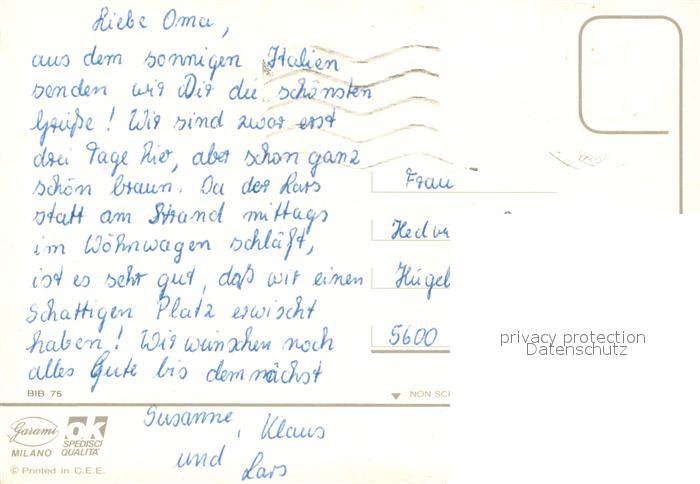 Liebe Oma,
aus dem sonnigen Italien
senden wir Dir die schönsten
Grüße! Wir sind zwar erst
drei Tage hier, aber schon ganz
schön braun. Da der Lars
statt am Strand mittags
im Wohnwagen schläft,
ist es sehr gut, daß wir einen
schattigen Platz erwischt
haben! Wir wünschen noch
alles Gute bis demnächst
Susanne, Klaus
und Lars
Frau
Hedw
Hügel
5600
privacy protection
Datenschutz
BIB 75
NON SCR
Garami
MILANO
ok
SPEDISCI
QUALITÀ
© Printed in C.E.E.